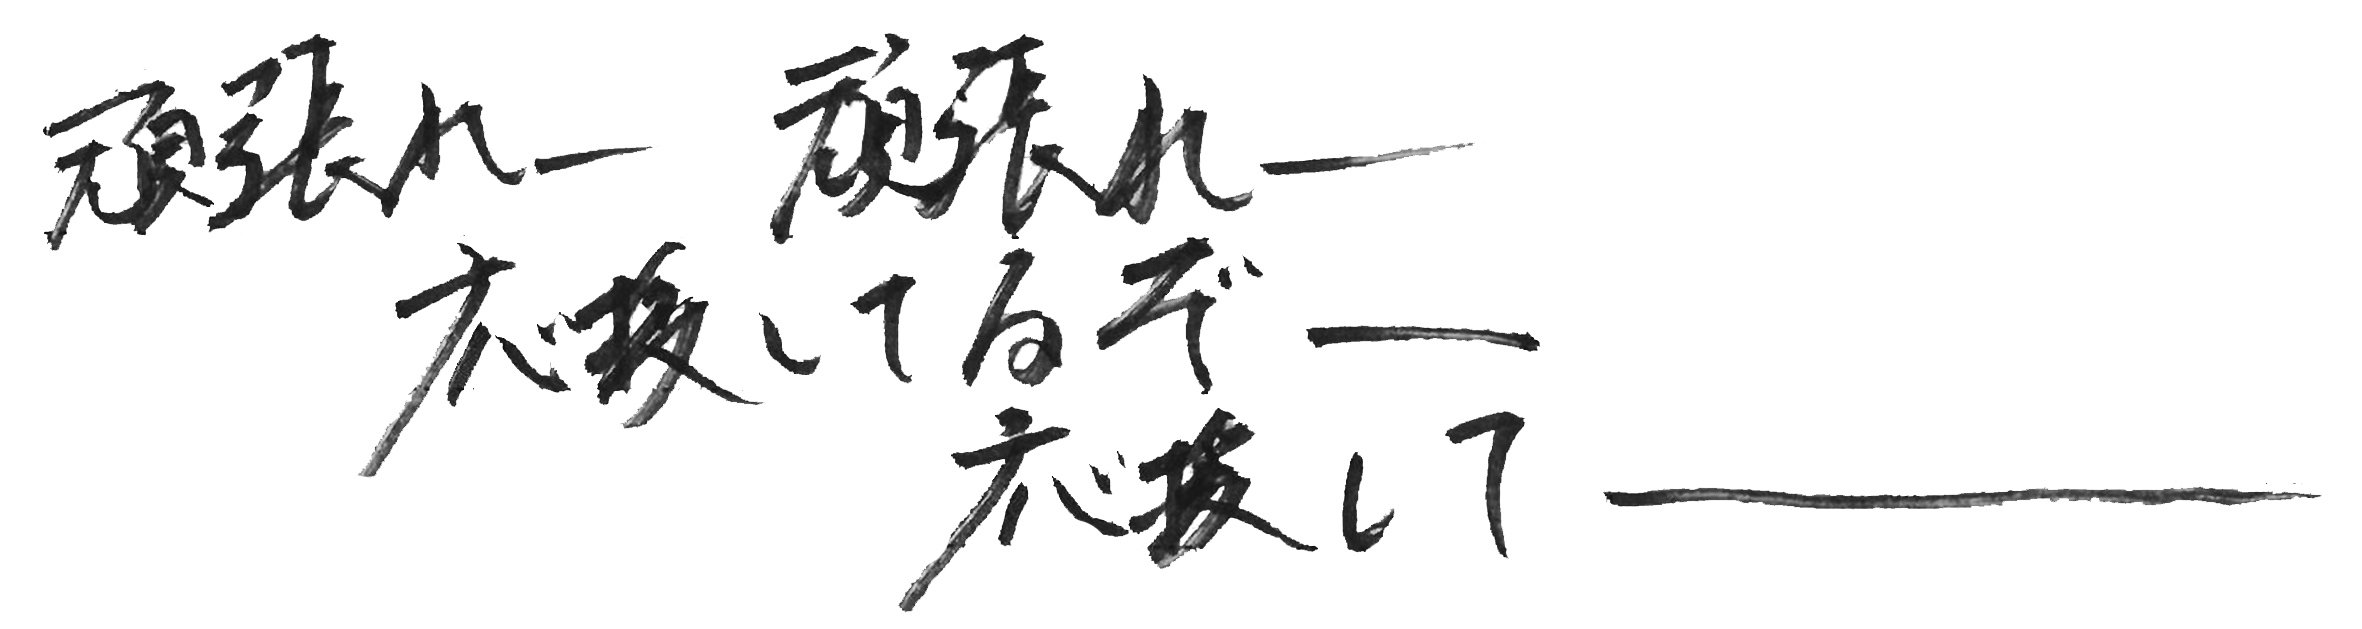 頑張れー 頑張れー
応援してるぞー
応援してーーー